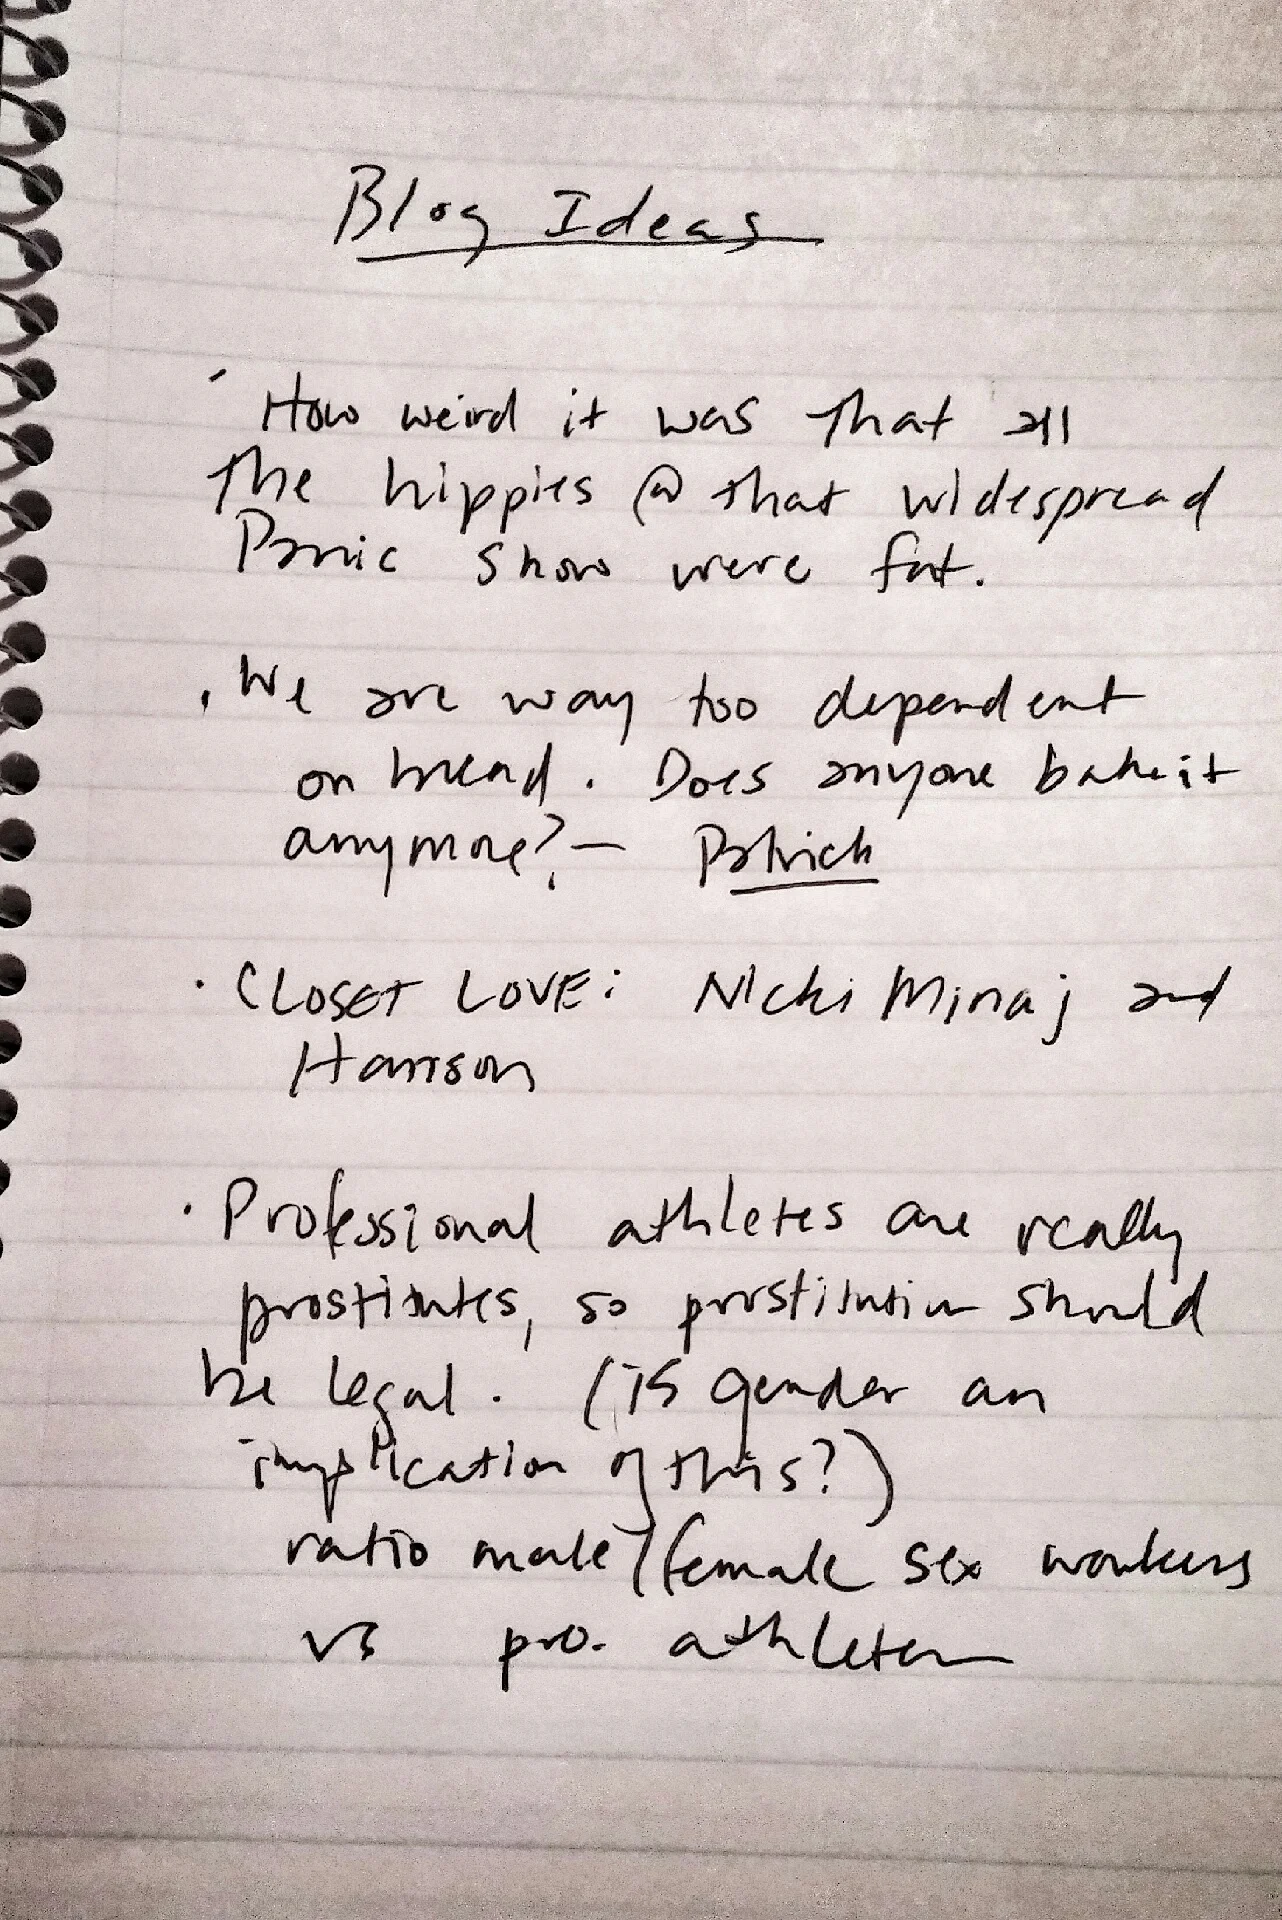 Blog Ideas
· How weird it was that all
the hippies @ that widespread
Panic show were fat.
· We are way too dependent
on bread. Does anyone bake it
anymore? - Patrick
· CLOSET LOVE: Nicki Minaj and
Hanson
· Professional athletes are really
prostitutes, so prostitution should
be legal. (is gender an
implication of this?)
ratio male/female sex workers
vs pro. athletes